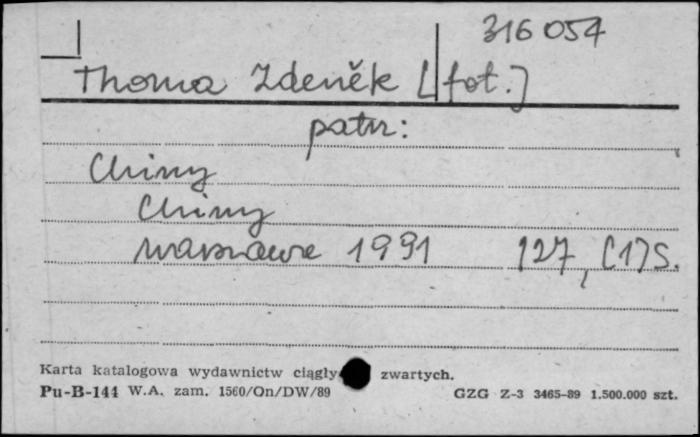 316 054
Thoma Zdeněk [fot.]
patrz:
Chiny
Chiny
Warszawa 1991 127, [1] s.
Karta katalogowa wydawnictw ciągły zwartych.
Pu-B-144 W.A. zam. 1560/On/DW/89 GZG Z-3 3465-89 1.500.000 szt.